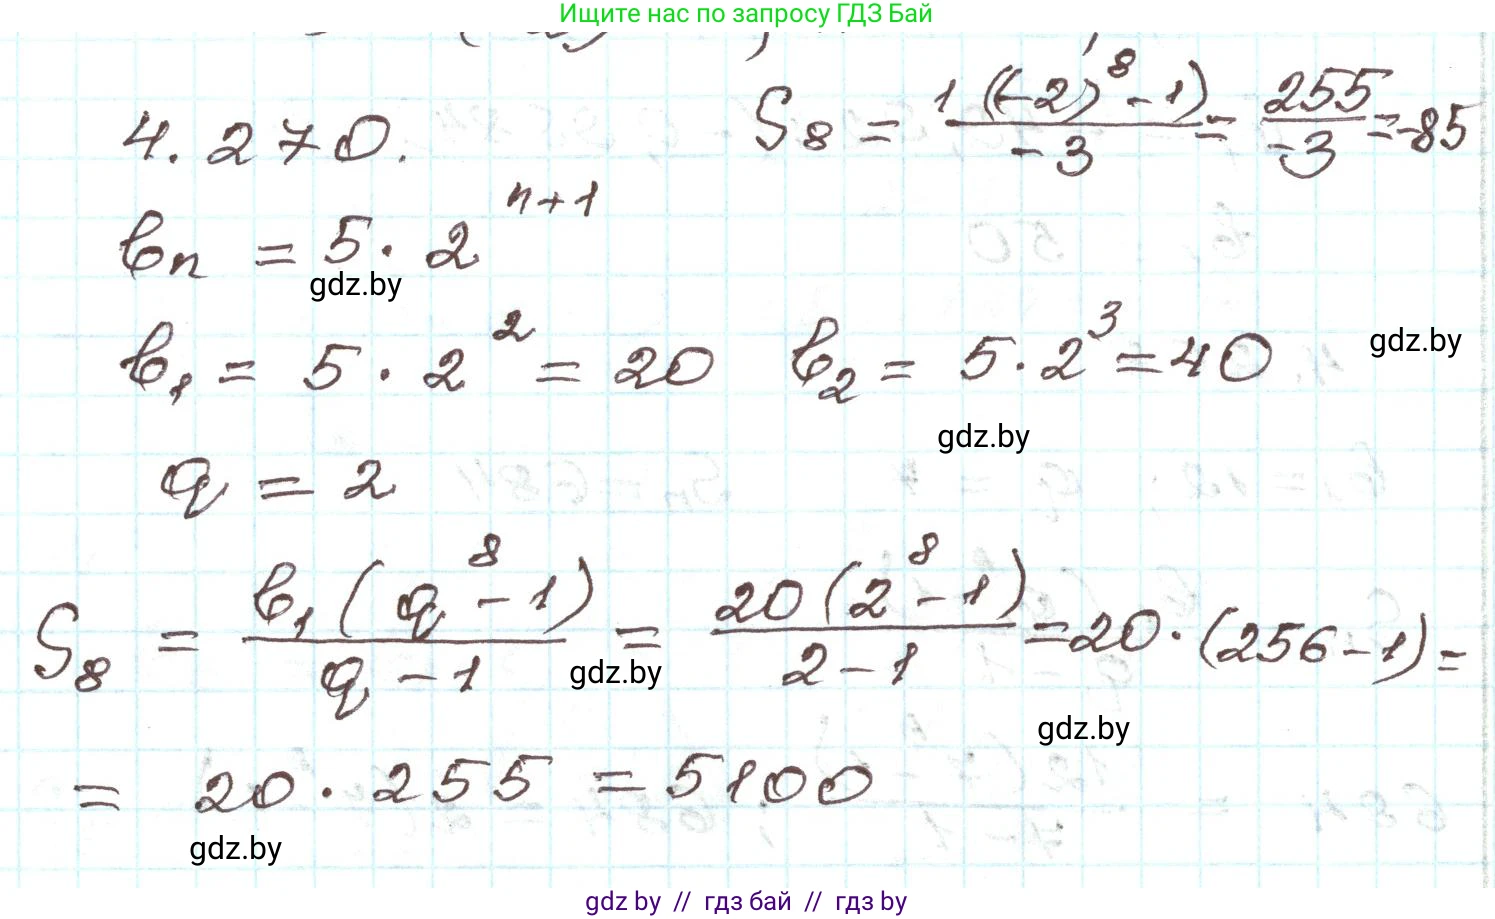 Ищите нас по запросу ГДЗ Бай
S₈ = 1((-2)⁸ - 1) / -3 = 255 / -3 = -85
4.270.
bₙ = 5 · 2ⁿ⁺¹
gdz.by
b₁ = 5 · 2² = 20 b₂ = 5 · 2³ = 40
gdz.by
gdz.by
q = 2
S₈ = b₁(q⁸ - 1) / q - 1 = 20(2⁸ - 1) / 2 - 1 = 20 · (256 - 1) =
gdz.by
gdz.by
= 20 · 255 = 5100
gdz.by
gdz by // гдз бай // гдз by